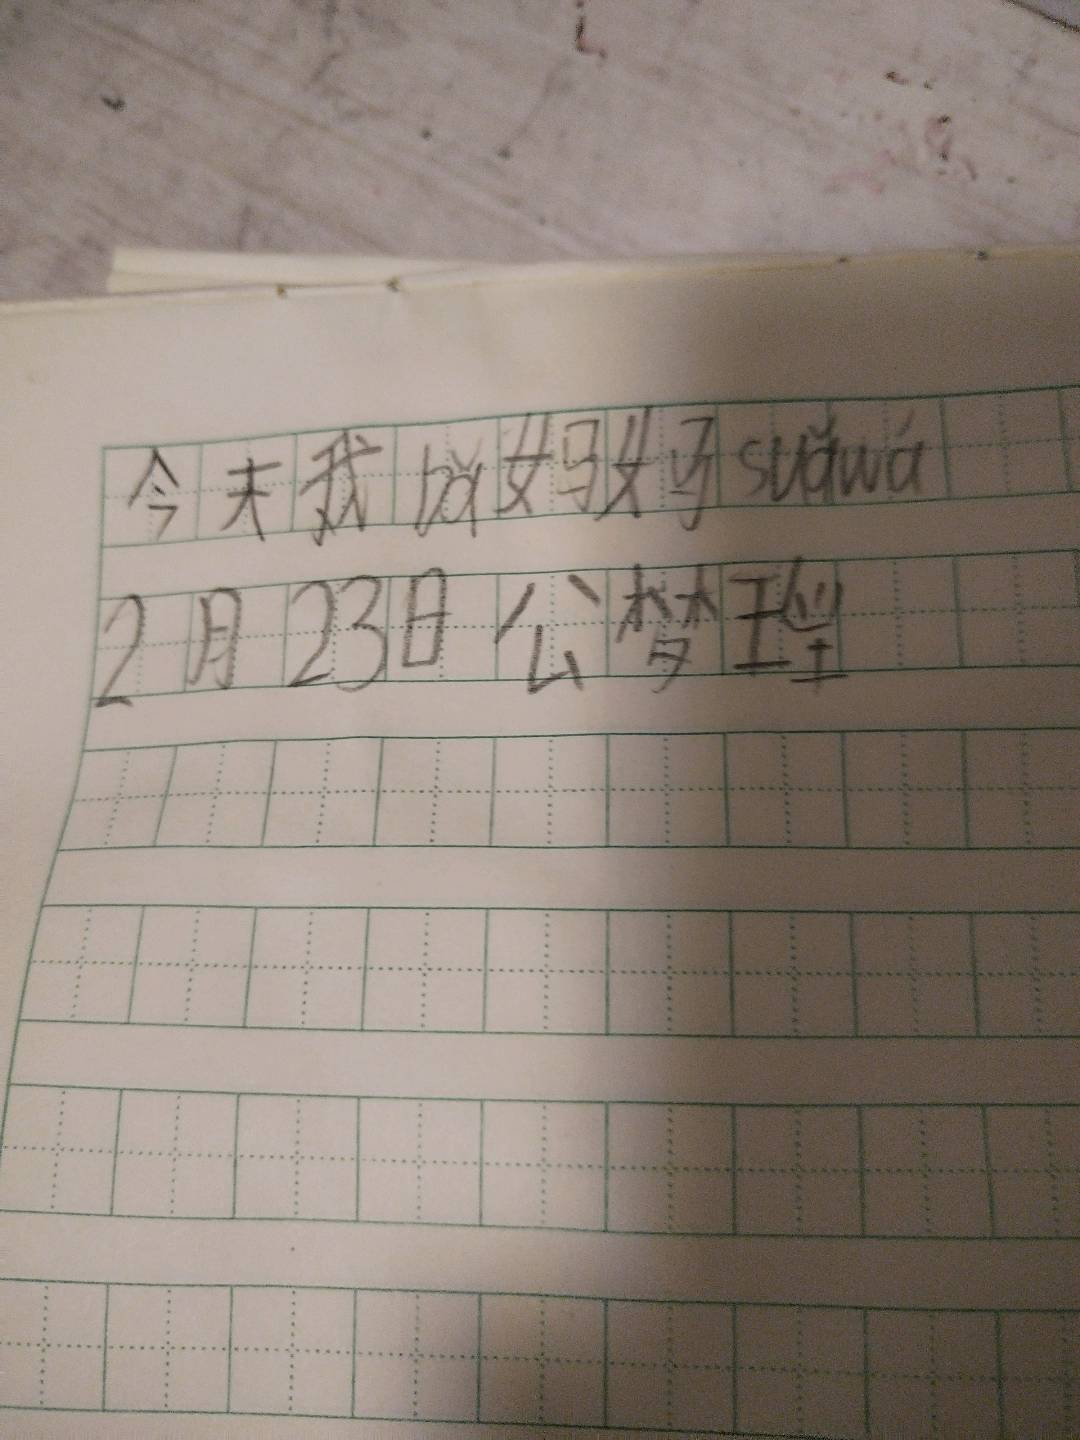 今天我bǎ妈妈suǎwá
2月23日公梦瑾